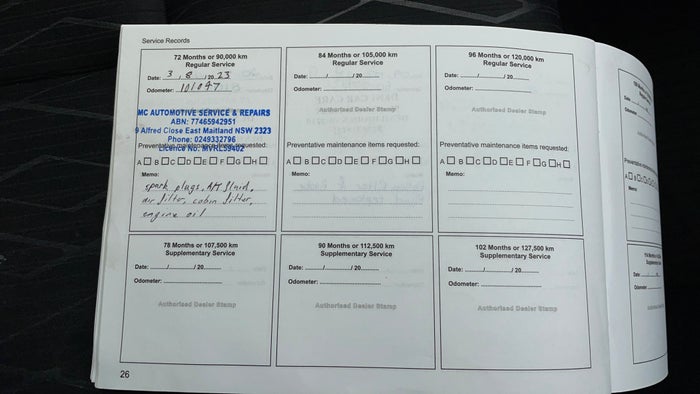 Service Records
72 Months or 90,000 km
Regular Service
Date: 3 / 8 / 20 23
Odometer: 101047
MC AUTOMOTIVE SERVICE & REPAIRS
ABN: 77465942951
9 Alfred Close East Maitland NSW 2323
Phone: 0249332796
Preventative maintenance items requested:
Licence No: MVRL59402
A B C D E F G H
Memo:
spark plugs, A/T fluid,
air filter, cabin filter,
engine oil
84 Months or 105,000 km
Regular Service
Date: / / 20
Odometer:
Authorised Dealer Stamp
Preventative maintenance items requested:
A B C D E F G H
Memo:
96 Months or 120,000 km
Regular Service
Date: / / 20
Odometer:
Authorised Dealer Stamp
Preventative maintenance items requested:
A B C D E F G H
Memo:
78 Months or 107,500 km
Supplementary Service
Date: / / 20
Odometer:
Authorised Dealer Stamp
90 Months or 112,500 km
Supplementary Service
Date: / / 20
Odometer:
Authorised Dealer Stamp
102 Months or 127,500 km
Supplementary Service
Date: / / 20
Odometer:
Authorised Dealer Stamp
26